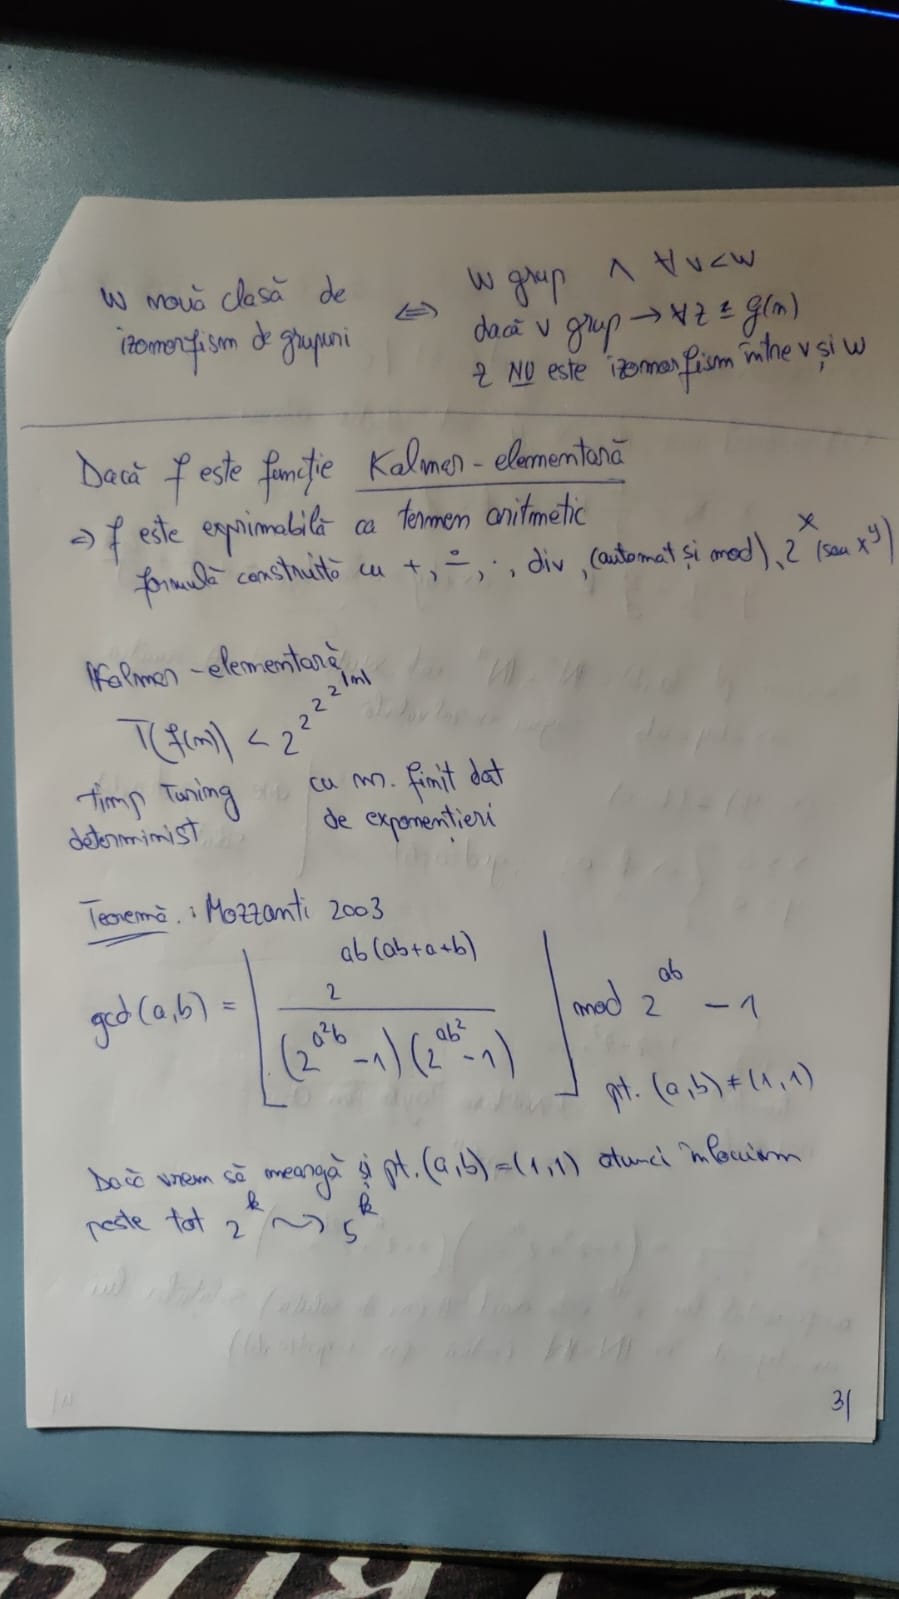 w nouă clasă de
izomorfism de grupuri
⇔
w grup ∧ ∀ v < w
dacă v grup → ∀ z ≤ g(n)
z NU este izomorfism între v și w
Dacă f este funcție Kalmer-elementară
⇒ f este exprimabilă ca termen aritmetic
formulă construită cu +, ∸, ·, div, (automat și mod), 2^x (sau x^y)
Kalmer-elementară
T(f(n)) < 2^2^2^2^|n|
timp Turing
determinist
cu nr. finit dat
de exponențieri
Teoremă: Mazzanti 2003
gcd(a,b) = ⌊ 2^{ab(ab+a+b)} / (2^{a²b} - 1)(2^{ab²} - 1) ⌋ mod 2^{ab} - 1
pt. (a,b) ≠ (1,1)
Dacă vrem să meargă și pt. (a,b) = (1,1) atunci înlocuim
peste tot 2^k ⇝ 5^k
31